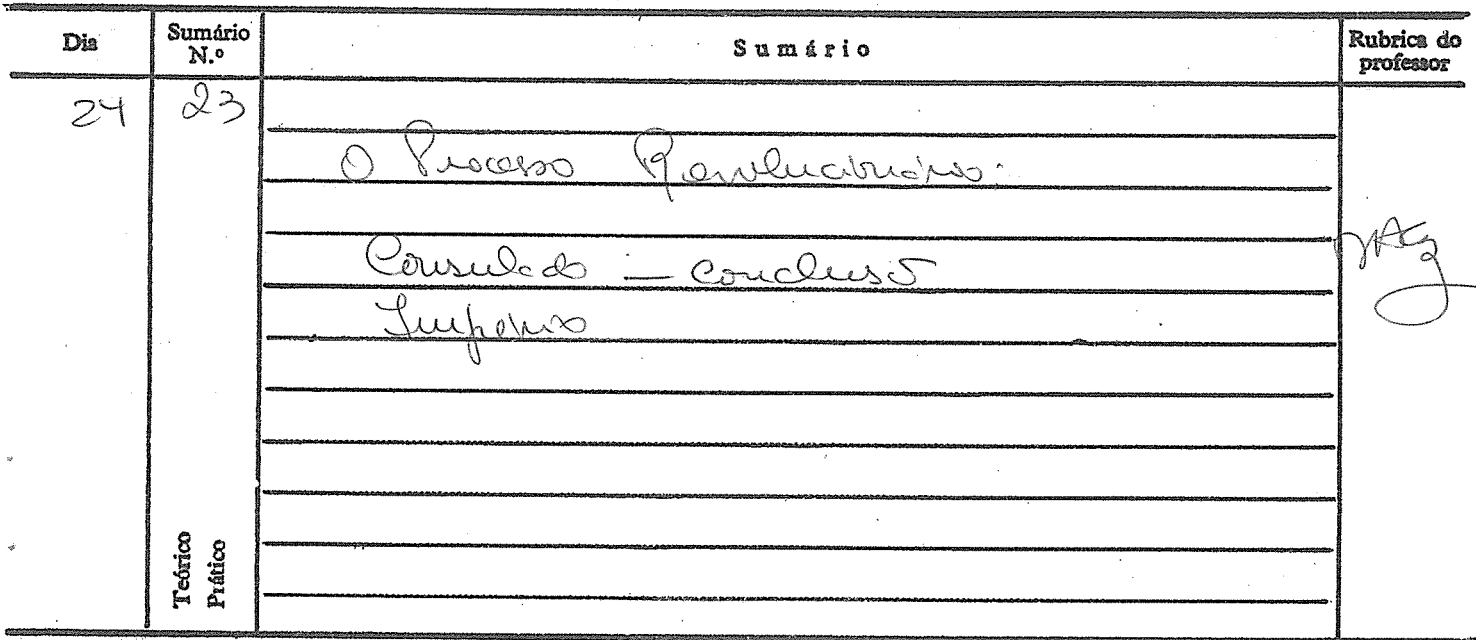 Dia Sumário N.º Sumário Rubrica do professor
24 23
O Processo Revolucionário:
Consulado – conclusão
Império
Teórico
Prático